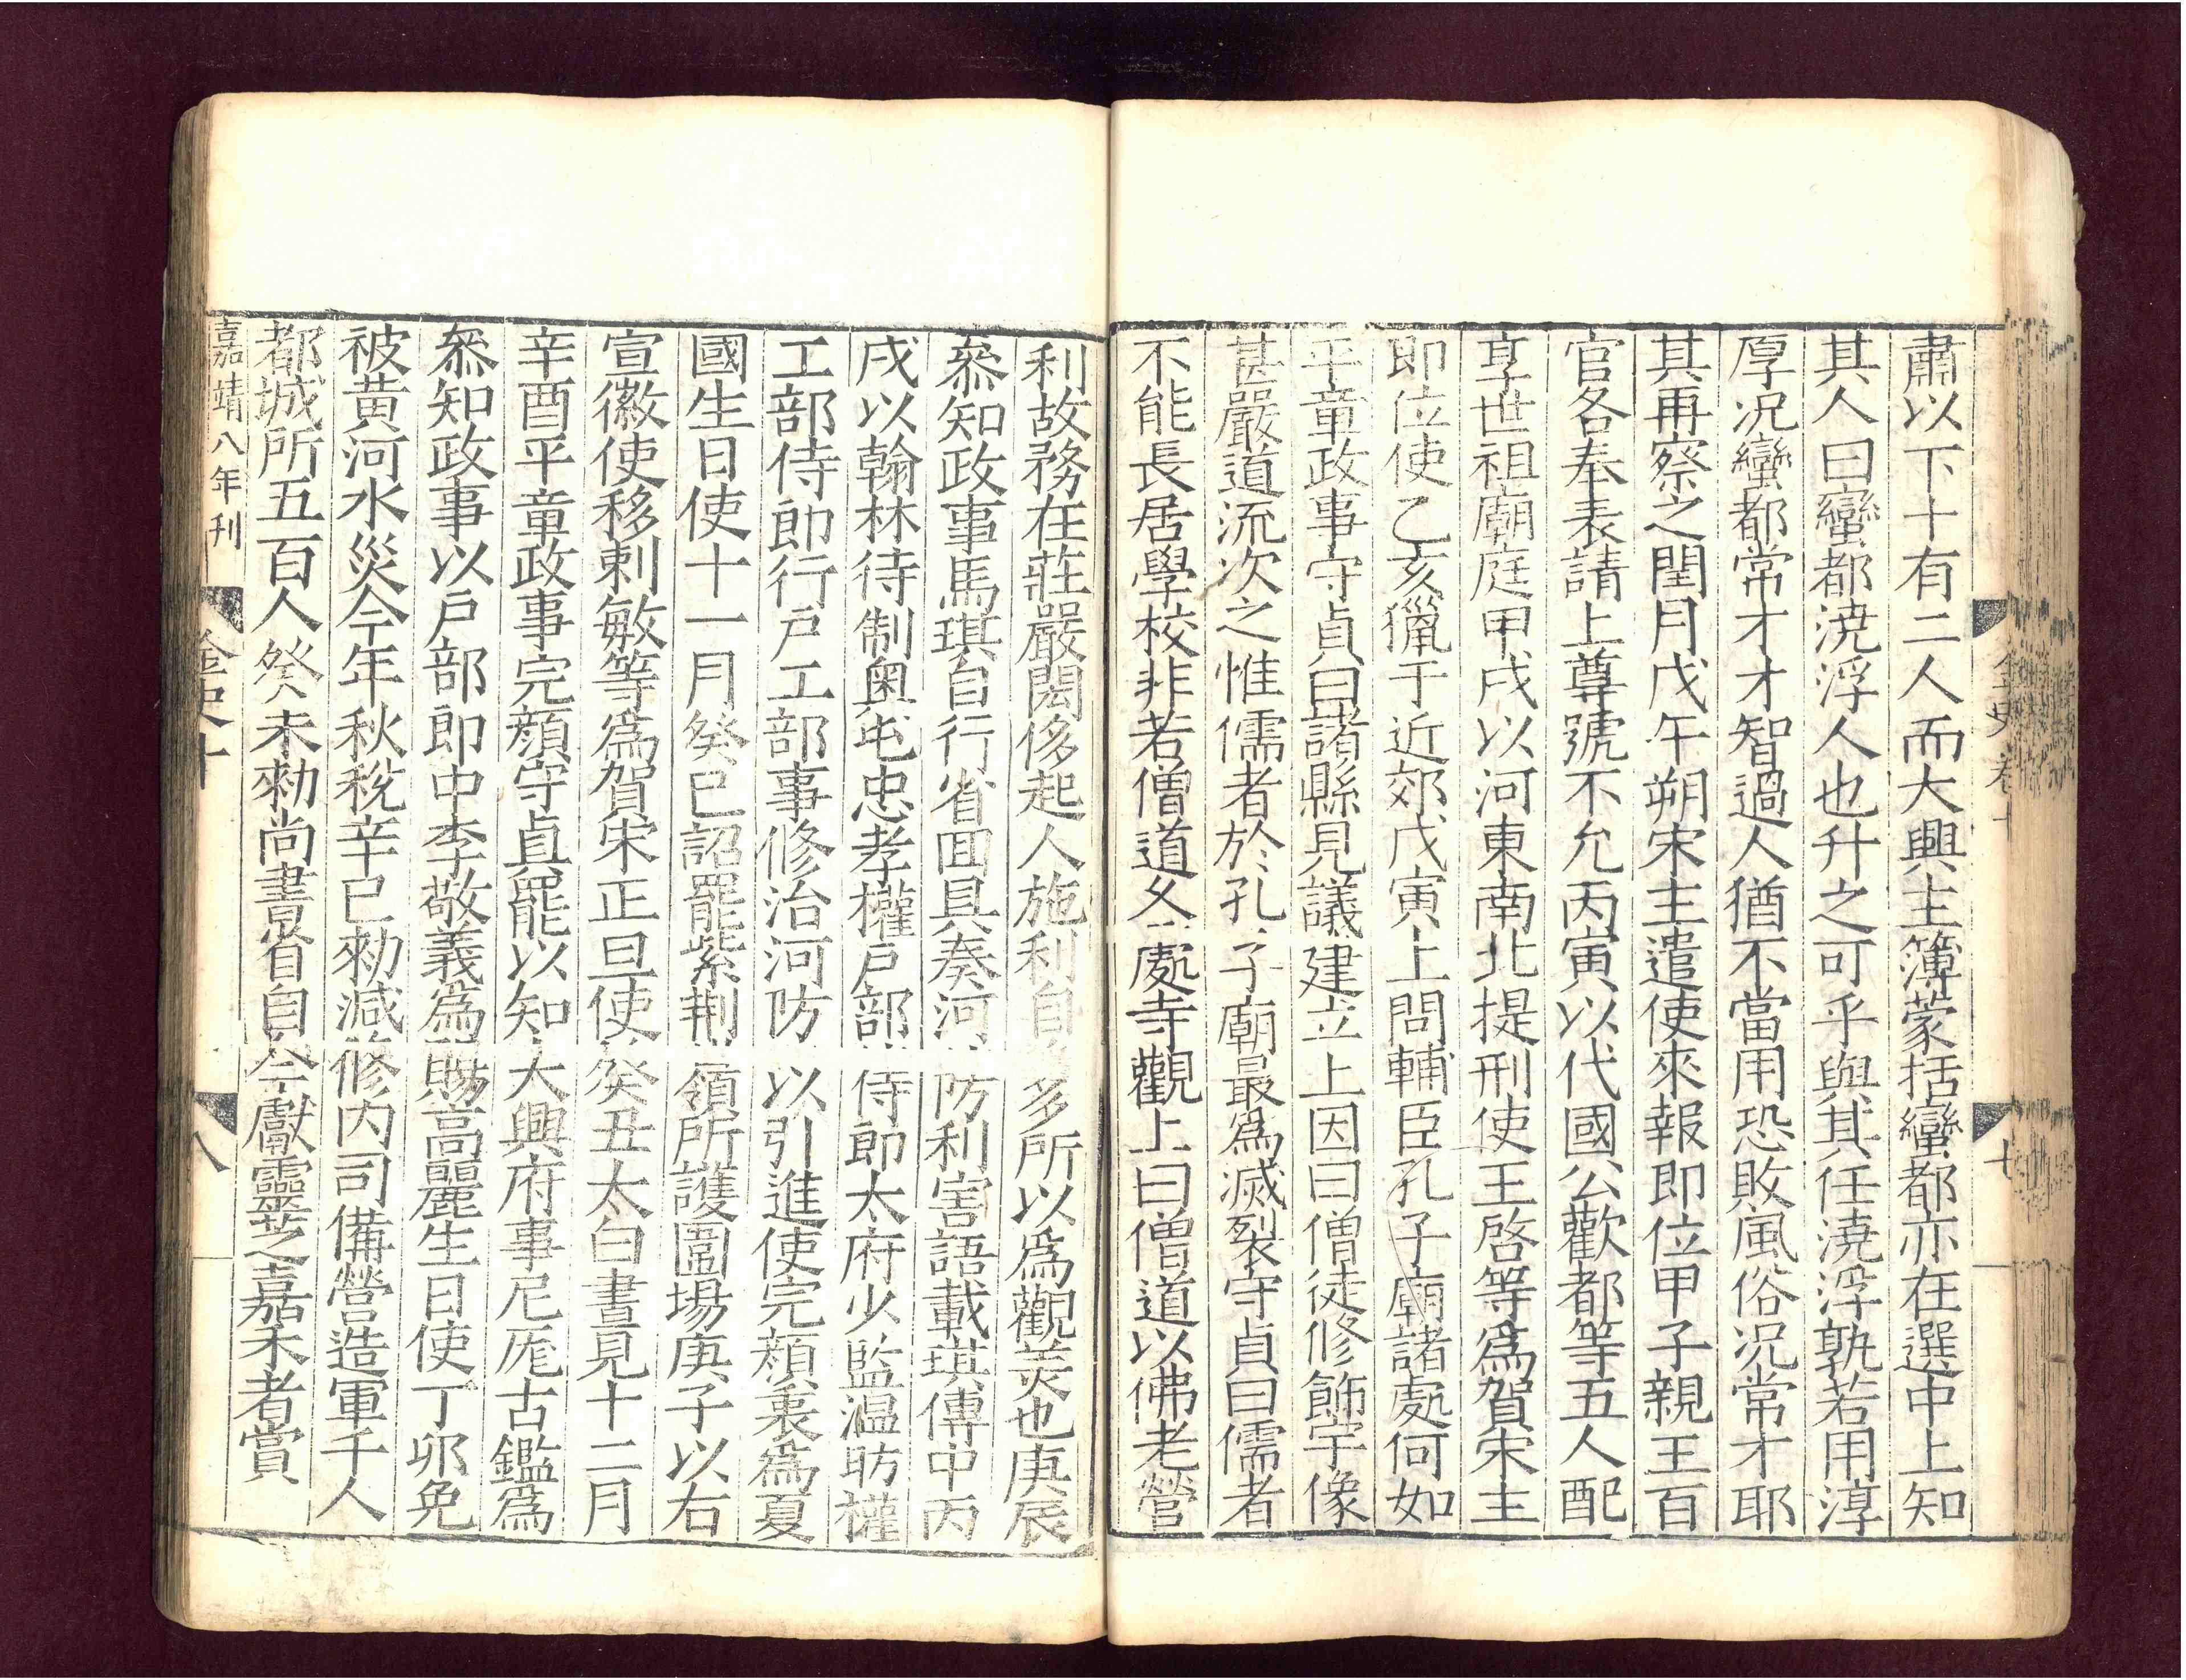 金史卷十
七
肅以下十有二人而大興主簿蒙括蠻都亦在選中上知
其人曰蠻都澆浮人也升之可乎與其任澆浮孰若用淳
厚况蠻都常才才智過人猶不當用恐敗風俗况常才耶
其再察之閏月戊午朔宋主遣使來報即位甲子親王百
官各奉表請上尊號不允丙寅以代國公歡都等五人配
享世祖廟庭甲戌以河東南北提刑使王啓等爲賀宋主
即位使乙亥獵于近郊戊寅上問輔臣孔子廟諸處何如
平章政事守貞曰諸縣見議建立上因曰僧徒修飾宇像
甚嚴道流次之惟儒者於孔子廟最爲滅裂守貞曰儒者
不能長居學校非若僧道久處寺觀上曰僧道以佛老營
利故務在莊嚴閎侈起人施利自多所以爲觀美也庚辰
叅知政事馬琪自行省囬具奏河防利害語載琪傳中丙
戌以翰林待制奥屯忠孝權戸部侍郎太府少監温昉權
工部侍郎行戸工部事修治河防以引進使完顔衷爲夏
國生日使十一月癸巳詔罷紫荆嶺所護圍場庚子以右
宣徽使移剌敏等爲賀宋正旦使癸丑太白晝見十二月
辛酉平章政事完顔守貞罷以知大興府事尼厖古鑑爲
叅知政事以戸部郎中李敬義爲賜高麗生日使丁卯免
被黄河水災今年秋税辛巳勑減修内司備營造軍千人
都城所五百人癸未勑尚書省自今獻靈芝嘉禾者賞
嘉靖八年刊
金史十
八